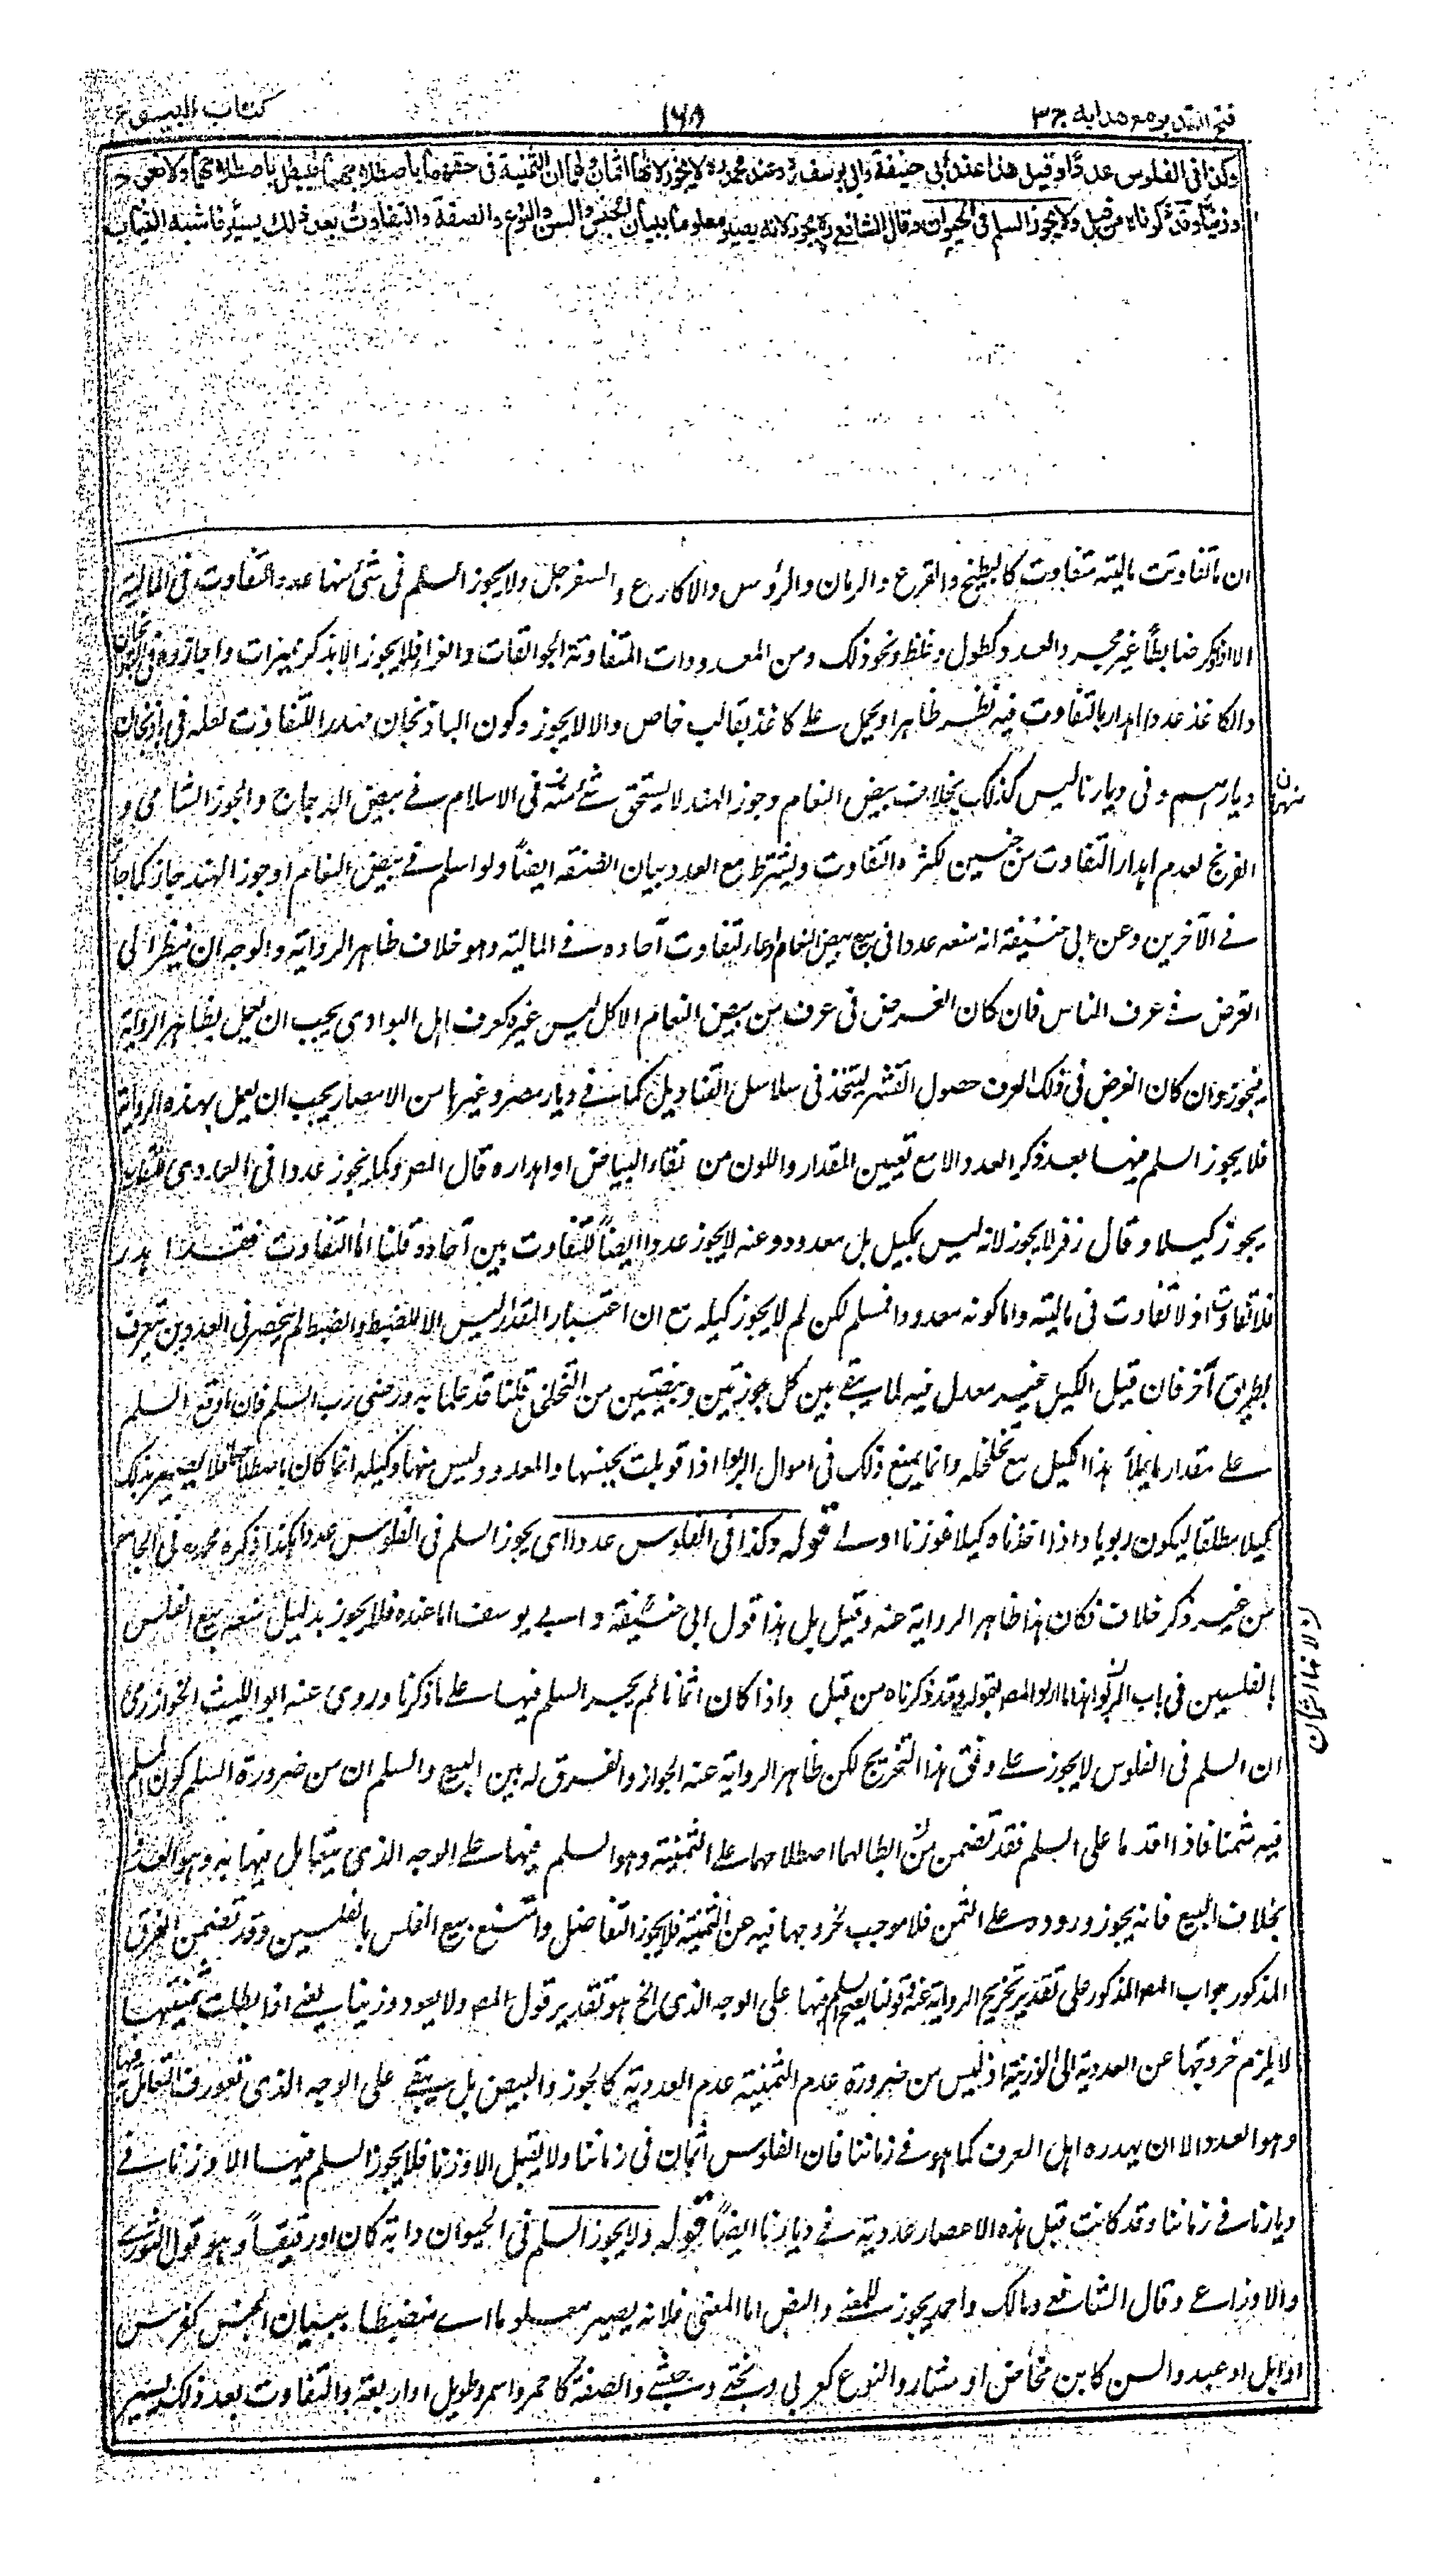 فتح القدير مع هدايه ج٣
١٦٨
كتاب البيوع
وكذا في الفلوس عددا وقيل هذا عند أبي حنيفة وأبي يوسف وعند محمد ره لا يجوز لانها اثمان ولهما ان الثمنية في حقهما باصطلاحهما فتبطل باصطلاحهما ولا تعود
وزنيا وقد ذكرناه من قبل ولا يجوز السلم في الحيوان وقال الشافعي ره يجوز لانه يصير معلوما ببيان الجنس والسن والنوع والصفة والتفاوت بعد ذلك يسير فاشبه الثياب
ان ما تفاوتت ماليته متفاوت كالبطيخ والقرع والرمان والرؤس والاكارع والسفرجل ولا يجوز السلم في شئ منها عددا للتفاوت في المالية
الا اذا ذكر ضابطا غير مجرد العدد كطول وغلظ ونحو ذلك ومن المعدودات المتفاوتة الجوالقات والفراء فلا يجوز الا بذكر مميزات واجازوه في الباذنجان
والكاغذ عددا لهدار التفاوت فيه نظر ظاهر او يحمل على كاغذ بقالب خاص والا لا يجوز وكون الباذنجان مهدر التفاوت لعله في باذنجان
ديارهم وفي ديارنا ليس كذلك بخلاف بيض النعام وجوز الهند لا يستحق شئ منه في الاسلام في بيض الدجاج والجوز الشامي و
الفرنج لعدم اهدار التفاوت من جنسين لكثرة التفاوت ويشترط مع العدد بيان الصفة ايضا ولو اسلم في بيض النعام او جوز الهند جاز كما جاز
في الآخرين وعن ابي حنيفة انه منعه عددا في بيع بيض النعام ادعاء لتفاوت آحاده في المالية وهو خلاف ظاهر الرواية والوجه ان ينظر الى
الغرض في عرف الناس فان كان الغرض في عرف من بيض النعام الاكل ليس غيره كعرف اهل البوادي يجب ان يعمل بظاهر الرواية
فيجوز وان كان الغرض في ذلك العرف حصول القشر ليتخذ في سلاسل القناديل كما في ديار مصر وغيرها من الامصار يجب ان يعمل بهذه الرواية
فلا يجوز السلم فيها بعد ذكر العدد الا مع تعيين المقدار واللون من نقاء البياض او اهداره قال المصر وكما يجوز عددا في العددي المتقارب
يجوز كيلا وقال زفر لا يجوز لانه ليس بمكيل بل معدود وعنه لا يجوز عددا ايضا للتفاوت بين آحاده قلنا اما التفاوت فقد اهدر
فلا تفاوت اذ لا تفاوت في ماليته واما كونه معدودا فمسلم لكن لم لا يجوز كيله مع ان اعتبار المقدار ليس الا للضبط والضبط لم ينحصر في العدد بل يتعرف
بطريق آخر فان قيل الكيل غير معدل فيه لما يبقى بين كل جوزتين وبيضتين من التخلخل قلنا قد علما به ورضي رب السلم فان اوقع السلم
على مقدار ما يملأ هذا الكيل مع تخلخله وانما يمنع ذلك في اموال الربوا اذا قوبلت بجنسها والمعدود ليس منها وكيله انما كان باصطلاحهما فلا يصير بذلك
كيلا مطلقا ليكون ربويا واذا اخذناه كيلا فوزنا اولى قوله وكذا في الفلوس عددا اي يجوز السلم في الفلوس عددا هكذا ذكره محمد ره في الجامع
من غير ذكر خلاف فكان هذا ظاهر الرواية عنه وقيل بل هذا قول ابي حنيفة وابي يوسف اما عنده فلا يجوز بدليل منعه بيع الفلس
بالفلسين في باب الربوا وهذا ما اراد المصر بقوله وقد ذكرناه من قبل واذا كان اثمانا لم يجز السلم فيها على ما ذكرنا وروى عنه ابو الليث الخوارزمي
ان السلم في الفلوس لا يجوز على وفق هذا التخريج لكن ظاهر الرواية عنه الجواز والفرق له بين البيع والسلم ان من ضرورة السلم كون المسلم
فيه مثمنا فاذا اقدما على السلم فقد تضمن ابطالهما اصطلاحهما على الثمنية وهو السلم فيها على الوجه الذي يتعامل فيها به وهو العدد
بخلاف البيع فانه يجوز وروده على الثمن فلا موجب لخروجها فيه عن الثمنية فلا يجوز التفاضل وامتنع بيع الفلس بالفلسين وقد تضمن الفرق
المذكور جواب المصر المذكور على تقدير تخريج الرواية عنه وقولنا يصح السلم فيها على الوجه الذي الخ هو تقدير قول المصر ولا يعود وزنيا يعني اذا بطلت ثمنيتها
لا يلزم خروجها عن العددية الى الوزنية اذ ليس من ضرورة عدم الثمنية عدم العددية كالجوز والبيض بل يبقى على الوجه الذي تعورف التعامل به فيها
وهو العدد الا ان يهدره اهل العرف كما هو في زماننا فان الفلوس اثمان في زماننا ولا يقبل الا وزنا فلا يجوز السلم فيها الا وزنا في
ديارنا في زماننا وقد كانت قبل هذه الاعصار عددية في ديارنا ايضا قوله ولا يجوز السلم في الحيوان دابة كان او رقيقا وهو قول الثوري
والاوزاعي وقال الشافعي ومالك واحمد يجوز للمعنى والنص اما المعنى فلانه يصير معلوما اي منضبطا ببيان الجنس كفرس
او ابل او عبد والسن كابن مخاض او عشار والنوع كعربي وبختي وحبشي والصفة كاحمر واسمر وطويل او ربعة والتفاوت بعد ذلك يسير